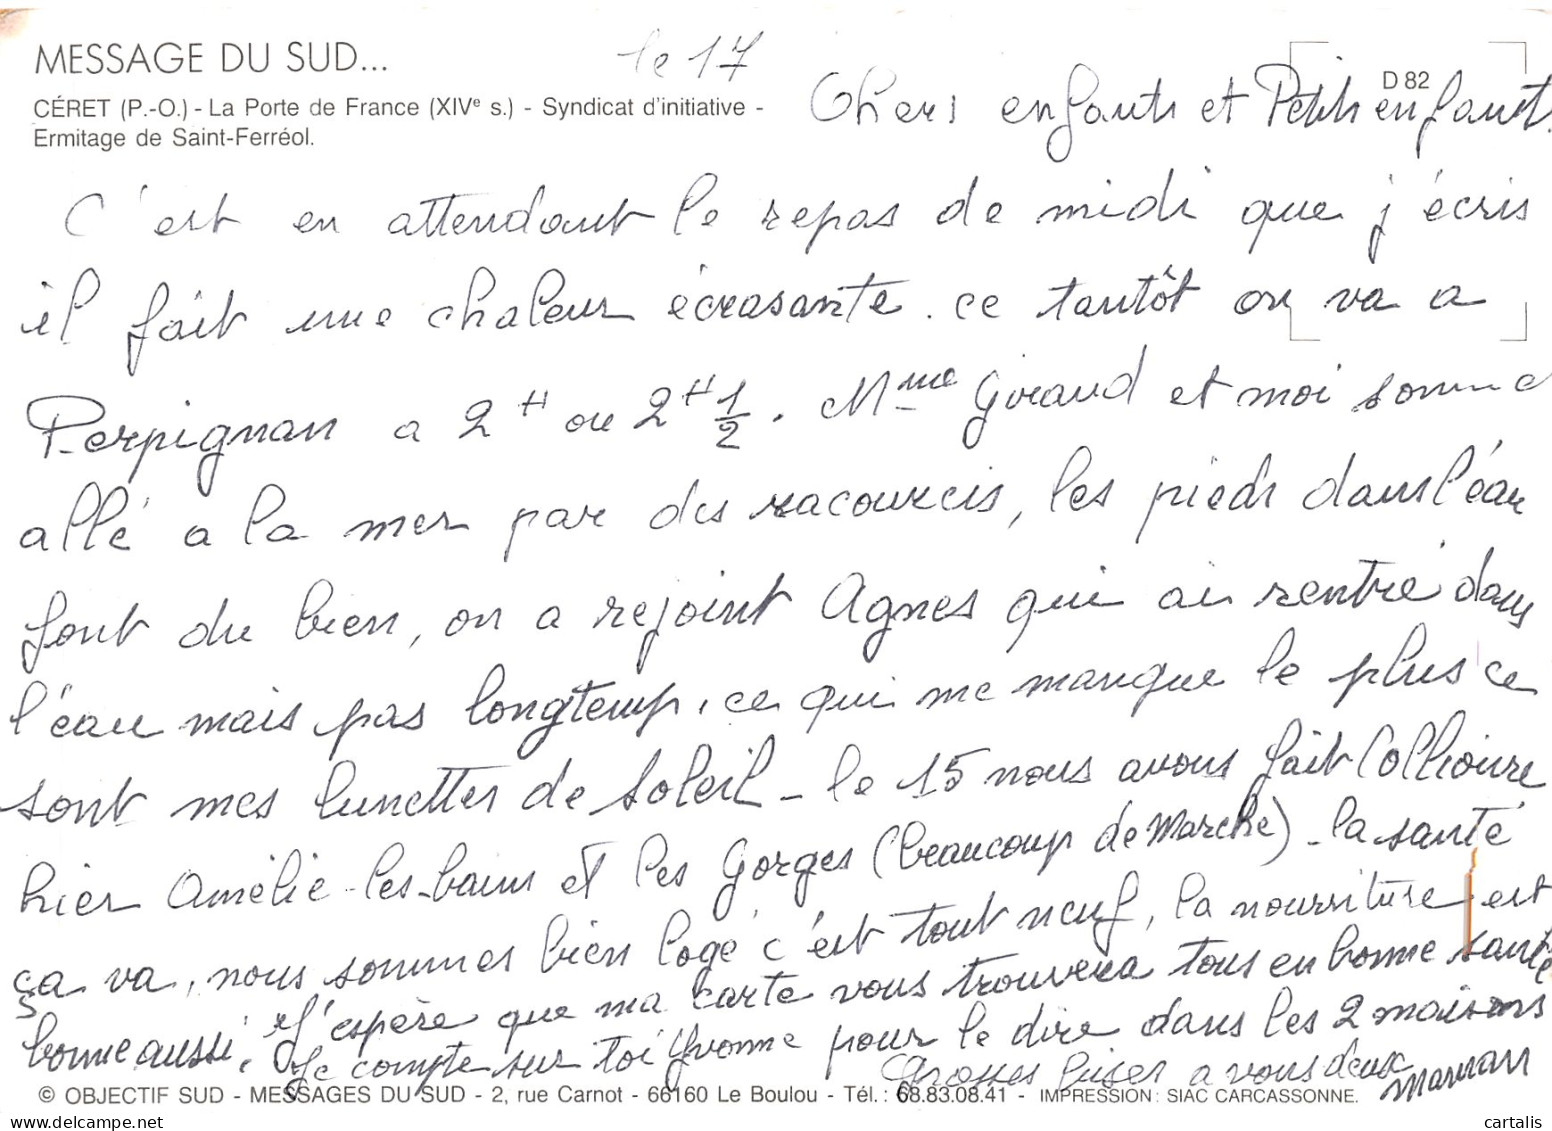 MESSAGE DU SUD...
le 17
D 82
CÉRET (P.-O.) - La Porte de France (XIVe s.) - Syndicat d'initiative -
Ermitage de Saint-Ferréol.
Chers enfants et Petits enfants.
C'est en attendant le repas de midi que j'écris
il fait une chaleur écrasante. ce tantôt on va a
Perpignan a 2 H ou 2 H 1/2. Mme Giraud et moi somme
allé a la mer par des racourcis, les pieds dans l'éau
font du bien, on a rejoint Agnes qui ai rentré dans
l'éau mais pas longtemps, ce qui me manque le plus ce
sont mes lunettes de soleil - le 15 nous avons fait Collioure
hier Amélie-les-bains et les Gorges (beaucoup de marche) - la santé
ça va, nous sommes bien logé c'est tout neuf, la nourriture est
bonne aussi. J'espère que ma carte vous trouvera tous en bonne santé
Je compte sur toi Yvonne pour le dire dans les 2 maisons
Grosses bises a vous deux
maman
© OBJECTIF SUD - MESSAGES DU SUD - 2, rue Carnot - 66160 Le Boulou - Tél. : 68.83.08.41 - IMPRESSION : SIAC CARCASSONNE.
cartalis